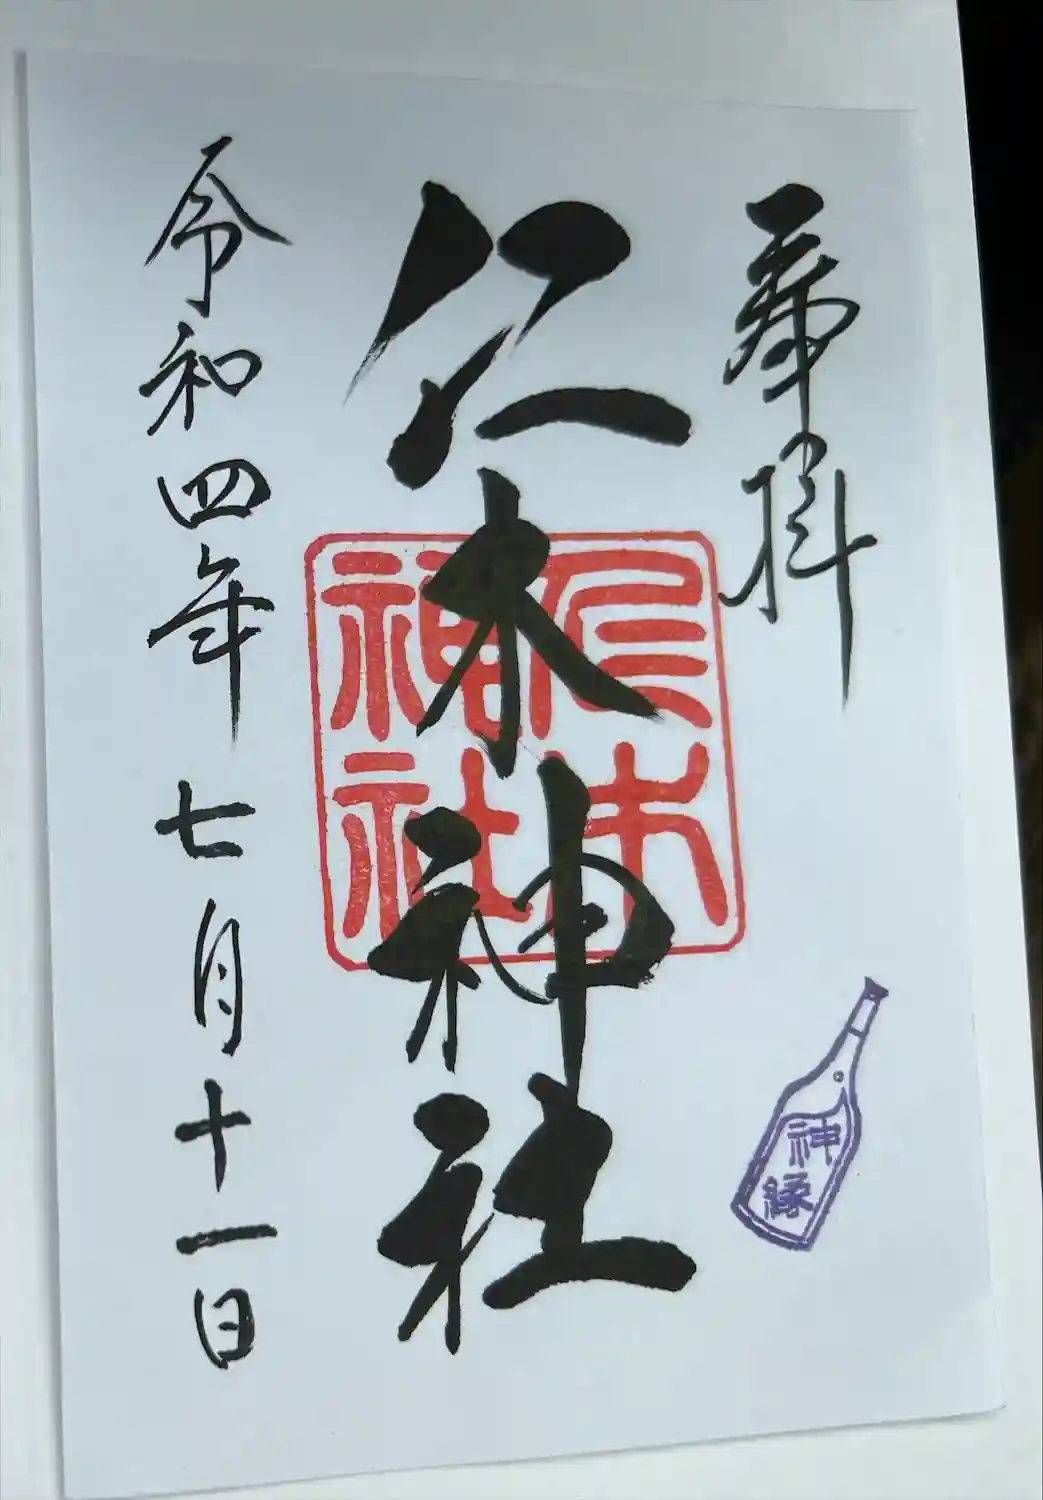 奉拝
仁木神社
仁木
神社
令和四年七月十一日
神
縁